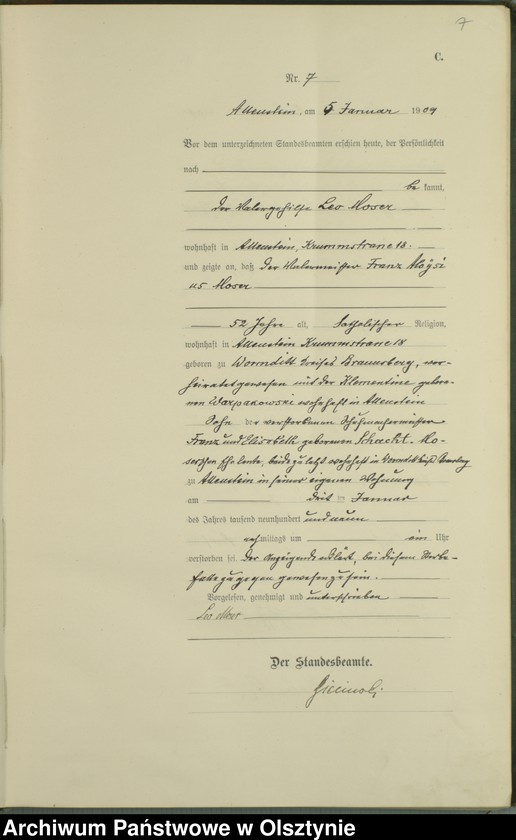 7
C.
Nr. 7
Allenstein, am 5 Januar 1909
Vor dem unterzeichneten Standesbeamten erschien heute, der Persönlichkeit
nach
be kannt,
der Malergehilfe Leo Moser
wohnhaft in Allenstein, Krummstrasse 18.
und zeigte an, daß der Malermeister Franz Aloysi
us Moser
52 Jahre alt, katholischer Religion,
wohnhaft in Allenstein Krummstrasse 18
geboren zu Wormditt Kreises Braunsberg, ver-
heiratet gewesen mit der Klementine gebore-
nen wohnhaft in Allenstein
Sohn der verstorbenen Schuhmachermeister
Franz und Elisabeth geborenen Schacht- Mo-
ser'schen Eheleute, beide zuletzt wohnhaft in Wormditt
zu Allenstein in seiner eigenen Wohnung
am drit en Januar
des Jahres tausend neunhundert und neun
mittags um ein Uhr
verstorben sei. Der Anzeigende erklärt, bei diesem Sterbe-
falle zugegen gewesen zu sein.
Vorgelesen, genehmigt und unterschrieben
Leo Moser
Der Standesbeamte.
Archiwum Państwowe w Olsztynie